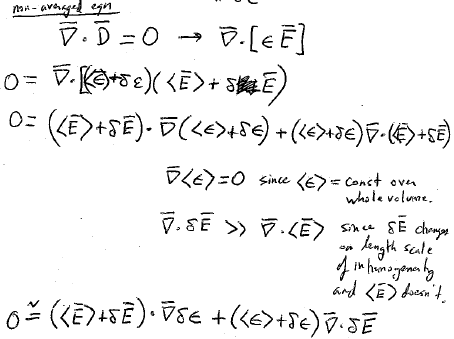 non-averaged eqn
∇̄·D̄ = 0 → ∇̄·[ϵĒ]
0 = ∇̄·[(⟨ϵ⟩+δϵ)(⟨Ē⟩+δĒ)
0 = (⟨Ē⟩+δĒ)·∇̄(⟨ϵ⟩+δϵ)+(⟨ϵ⟩+δϵ)∇̄·(⟨Ē⟩+δĒ)
∇̄⟨ϵ⟩=0 since ⟨ϵ⟩ = const over
whole volume.
∇̄·δĒ >> ∇̄·⟨Ē⟩ since δĒ changes
on length scale
of inhomogeneity
and ⟨Ē⟩ doesn't.
0 ≅ (⟨Ē⟩+δĒ)·∇̄δϵ +(⟨ϵ⟩+δϵ)∇̄·δĒ